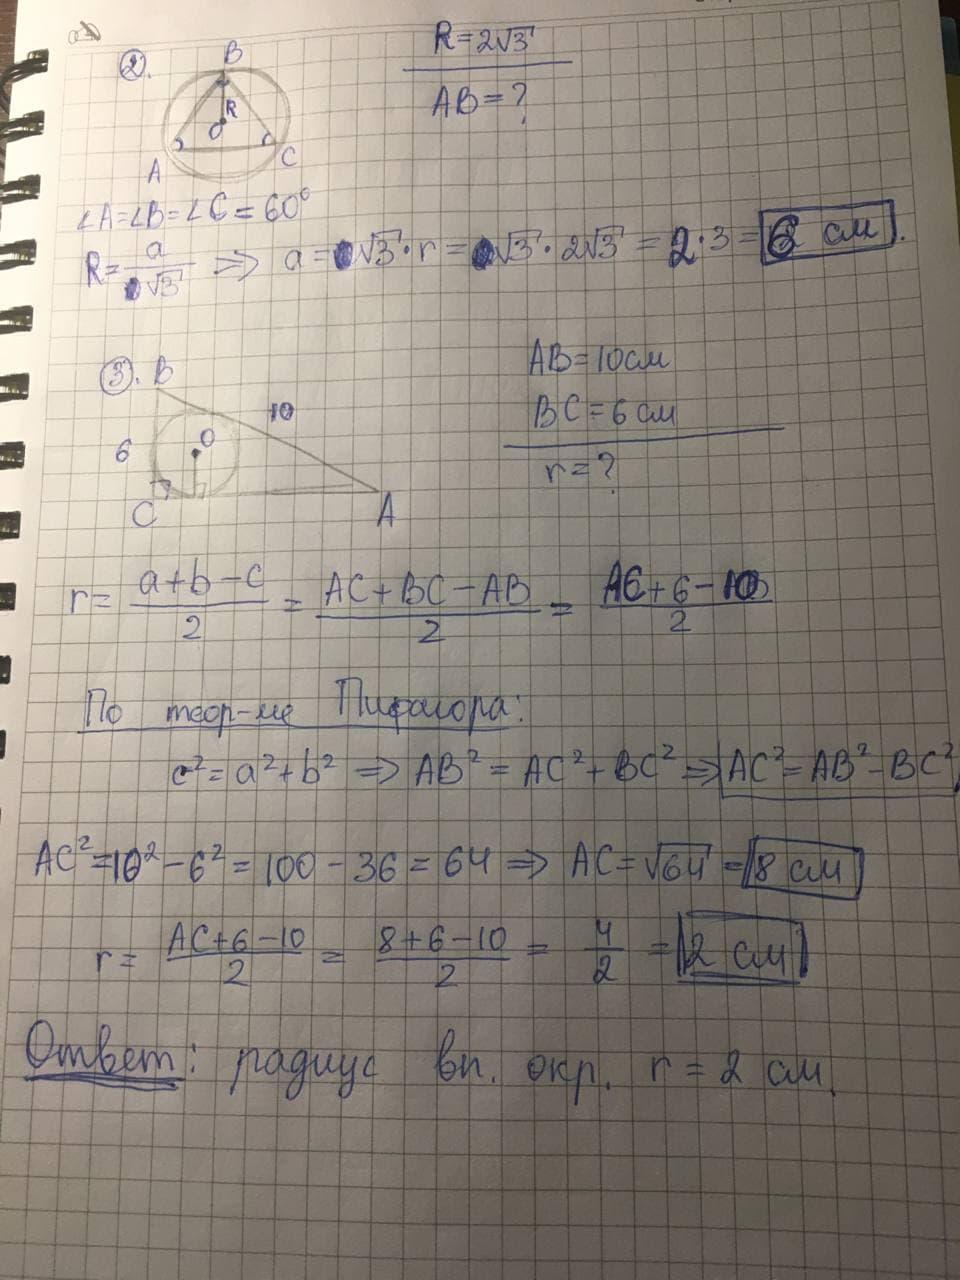 2. B R = 2√3
R O AB = ?
A C
∠A = ∠B = ∠C = 60°
R = a/√3 ⇒ a = √3 · r = √3 · 2√3 = 2 · 3 = 6 см.
3. B AB = 10 см
10 BC = 6 см
6 O r = ?
C A
r = (a + b - c)/2 = (AC + BC - AB)/2 = (AC + 6 - 10)/2
По теор-ме Пифагора:
c² = a² + b² ⇒ AB² = AC² + BC² ⇒ AC² = AB² - BC²
AC² = 10² - 6² = 100 - 36 = 64 ⇒ AC = √64 = 8 см
r = (AC + 6 - 10)/2 = (8 + 6 - 10)/2 = 4/2 = 2 см
Ответ: радиус вп. окр. r = 2 см.